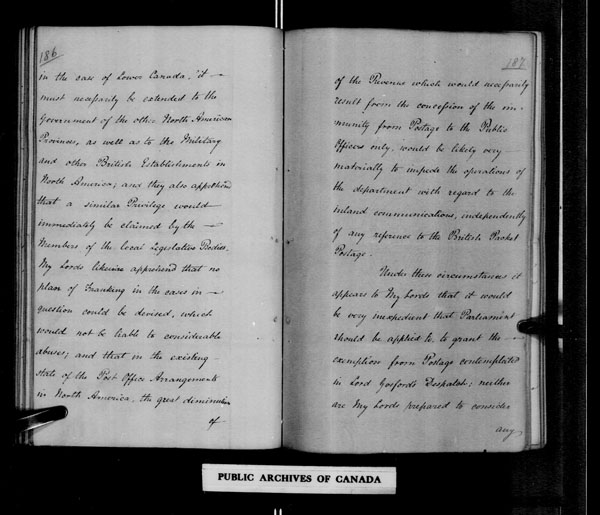 186
in the case of Lower Canada, it
must necessarily be extended to the
Government of the other North American
Provinces, as well as to the Military
and other British Establishments in
North America; and they also apprehend
that a similar Privilege would
immediately be claimed by the
Members of the local Legislative Bodies.
My Lords likewise apprehend that no
plan of Franking in the cases in
question could be devised, which
would not be liable to considerable
abuse; and that in the existing
state of the Post Office Arrangements
in North America, the great diminution
of
187
of the Revenue which would necessarily
result from the concession of the im-
munity from Postage to the Public
Officers only, would be likely very
materially to impede the operations of
the department with regard to the
inland communications, independently
of any reference to the British Packet
Postage.
Under these circumstances it
appears to My Lords that it would
be very inexpedient that Parliament
should be applied to, to grant the
exemption from Postage contemplated
in Lord Gosford's Despatch; neither
are My Lords prepared to consider
any
PUBLIC ARCHIVES OF CANADA